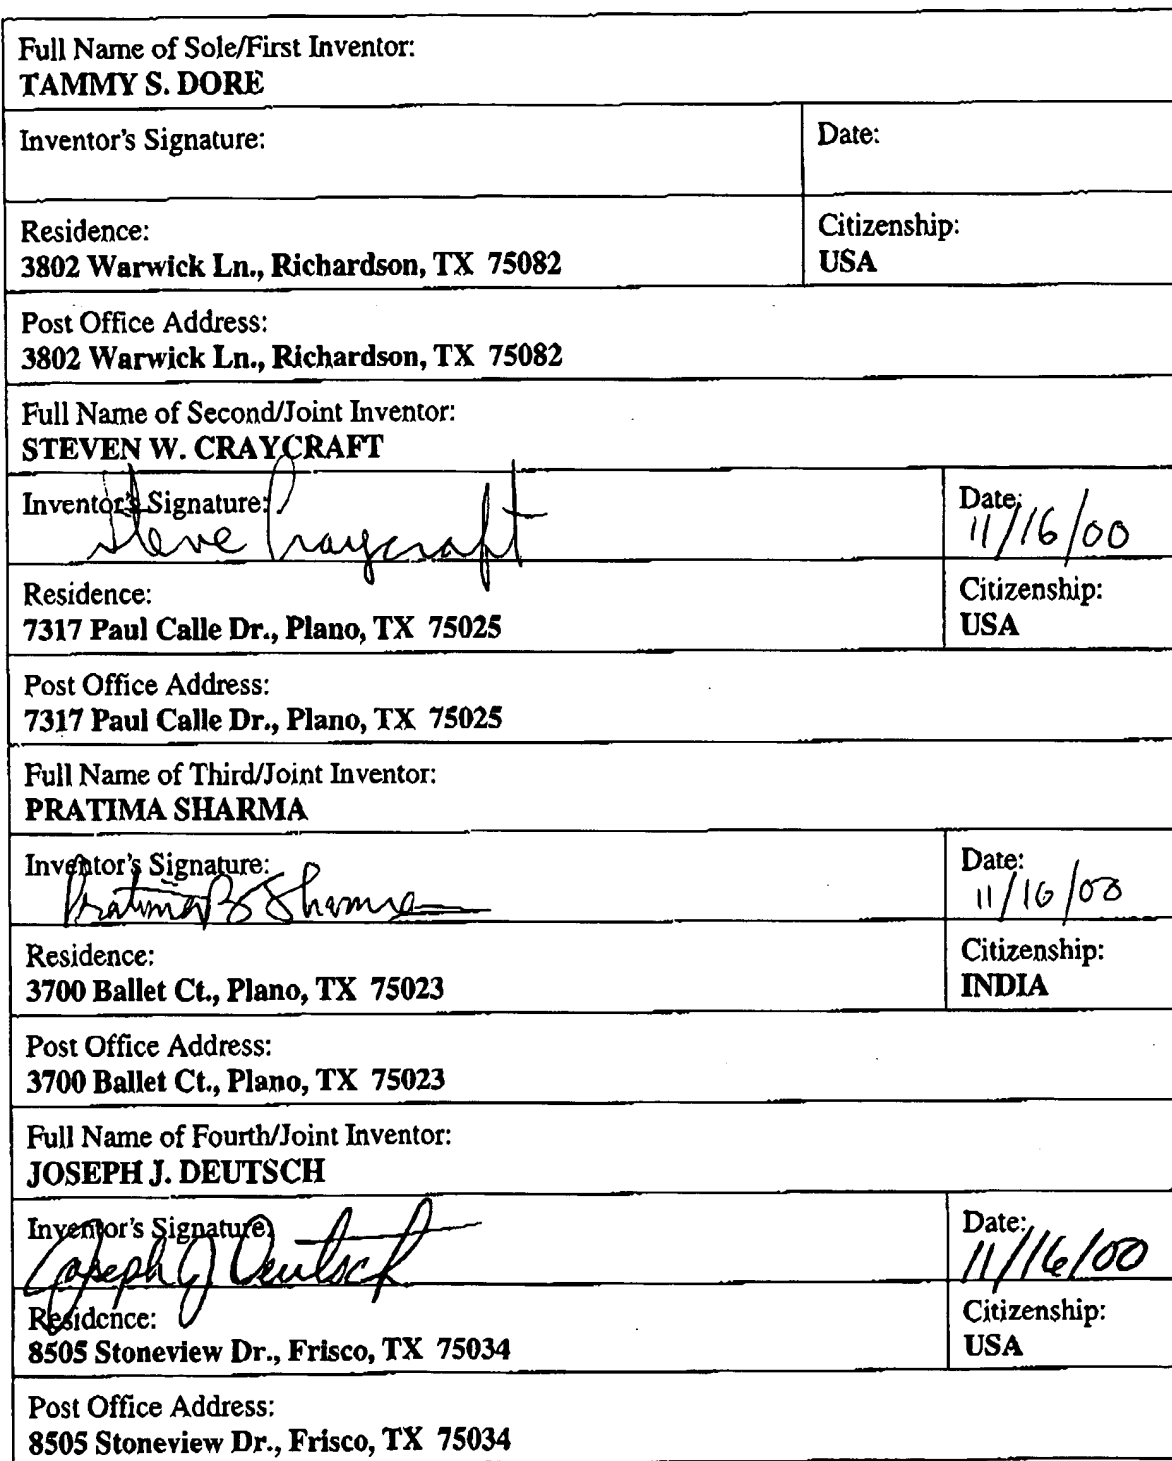 Full Name of Sole/First Inventor:
TAMMY S. DORE
Inventor's Signature:
Date:
Residence:
3802 Warwick Ln., Richardson, TX 75082
Citizenship:
USA
Post Office Address:
3802 Warwick Ln., Richardson, TX 75082
Full Name of Second/Joint Inventor:
STEVEN W. CRAYCRAFT
Inventor's Signature:
Steve Craycraft
Date:
11/16/00
Residence:
7317 Paul Calle Dr., Plano, TX 75025
Citizenship:
USA
Post Office Address:
7317 Paul Calle Dr., Plano, TX 75025
Full Name of Third/Joint Inventor:
PRATIMA SHARMA
Inventor's Signature:
Pratima B Sharma
Date:
11/16/00
Residence:
3700 Ballet Ct., Plano, TX 75023
Citizenship:
INDIA
Post Office Address:
3700 Ballet Ct., Plano, TX 75023
Full Name of Fourth/Joint Inventor:
JOSEPH J. DEUTSCH
Inventor's Signature:
Joseph J Deutsch
Date:
11/16/00
Residence:
8505 Stoneview Dr., Frisco, TX 75034
Citizenship:
USA
Post Office Address:
8505 Stoneview Dr., Frisco, TX 75034